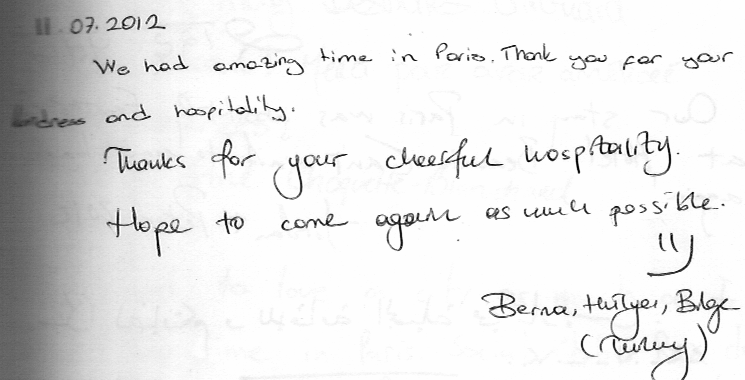 11.07.2012
We had amazing time in Paris. Thank you for your
kindness and hospitality.
Thanks for your cheerful hospitality.
Hope to come again as much possible.
Berna, Hülya, Bilge
(Turkey)